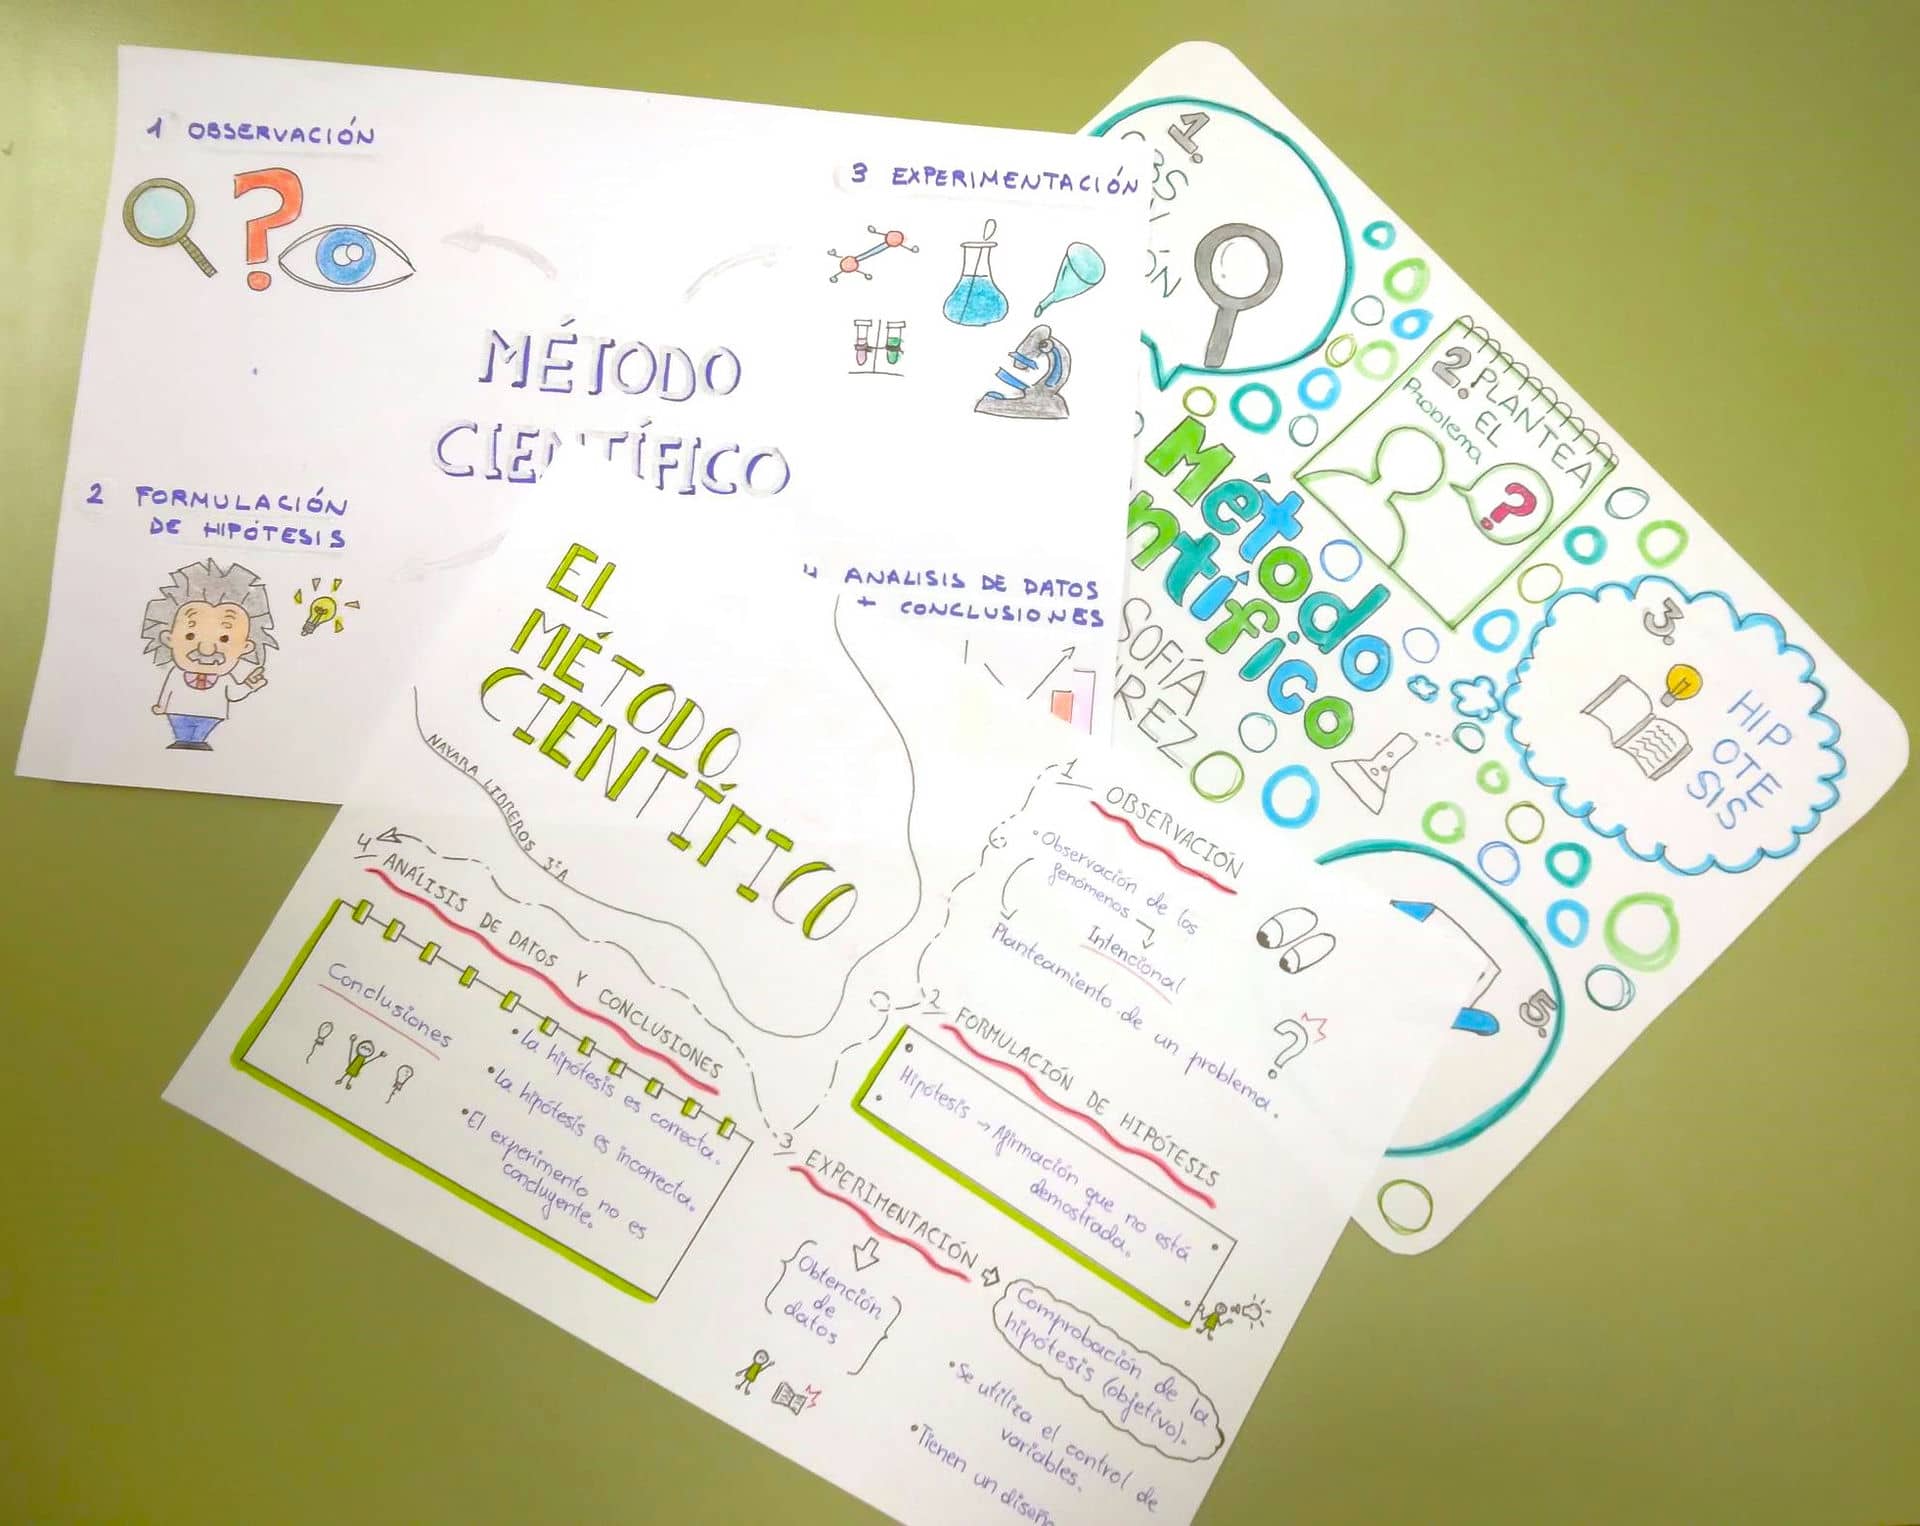 1 OBSERVACIÓN
2 FORMULACIÓN
DE HIPÓTESIS
MÉTODO
CIENTÍFICO
3 EXPERIMENTACIÓN
4 ANALISIS DE DATOS
+ CONCLUSIONES
1.
2. PLANTEA
EL
Problema
Método
ntífico
SOFÍA
3.
HIP
OTE
SIS
5.
EL
MÉTODO
CIENTÍFICO
NAYARA LIBREROS 3ºA
1 OBSERVACIÓN
• Observación de los
fenómenos
Intencional
Planteamiento de un problema.
2 FORMULACIÓN DE HIPÓTESIS
Hipótesis → Afirmación que no está
demostrada.
3 EXPERIMENTACIÓN
Obtención
de
datos
Comprobación de la
hipótesis (objetivo).
• Se utiliza el control de
variables.
• Tienen un diseño
4 ANÁLISIS DE DATOS Y CONCLUSIONES
Conclusiones
• La hipótesis es correcta.
• La hipótesis es incorrecta.
• El experimento no es
concluyente.